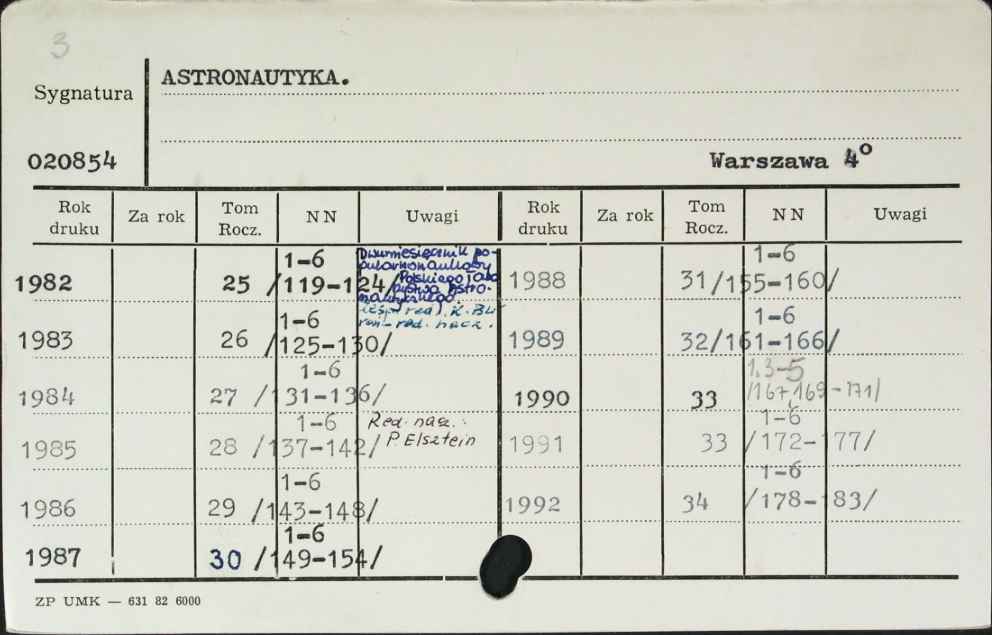 3
Sygnatura
ASTRONAUTYKA.
020854
Warszawa 4°
Rok druku Za rok Tom Rocz. NN Uwagi Rok druku Za rok Tom Rocz. NN Uwagi
1982 25 1-6 /119-124/ Dwumiesięcznik po-
Polskiego
1988 31 1-6 /155-160/
K. Bł
red. nacz.
1983 26 1-6 /125-130/
1989 32 1-6 /161-166/
1984 27 1-6 /131-136/
1990 33 1,3-5 /167,169-171/
1985 28 1-6 /137-142/ Red. nacz.:
P. Elsztein
1991 33 1-6 /172-177/
1986 29 1-6 /143-148/
1992 34 1-6 /178-183/
1987 30 1-6 /149-154/
ZP UMK — 631 82 6000